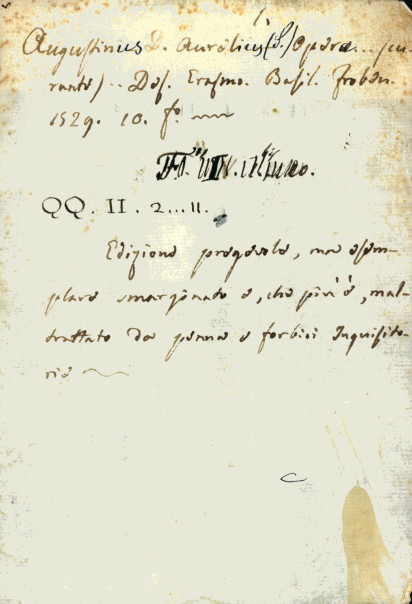 Augustinius D. Aurelius (S.) Opera... cu-
rante).. Des. Erasmo. Basil. Froben.
1529. 10. fo.
QQ. II. 2...11.
Edizione pregevole, ma esem-
plare smarginato e, che piu è, mal-
trattato da penna e forbici Inquisito-
rie